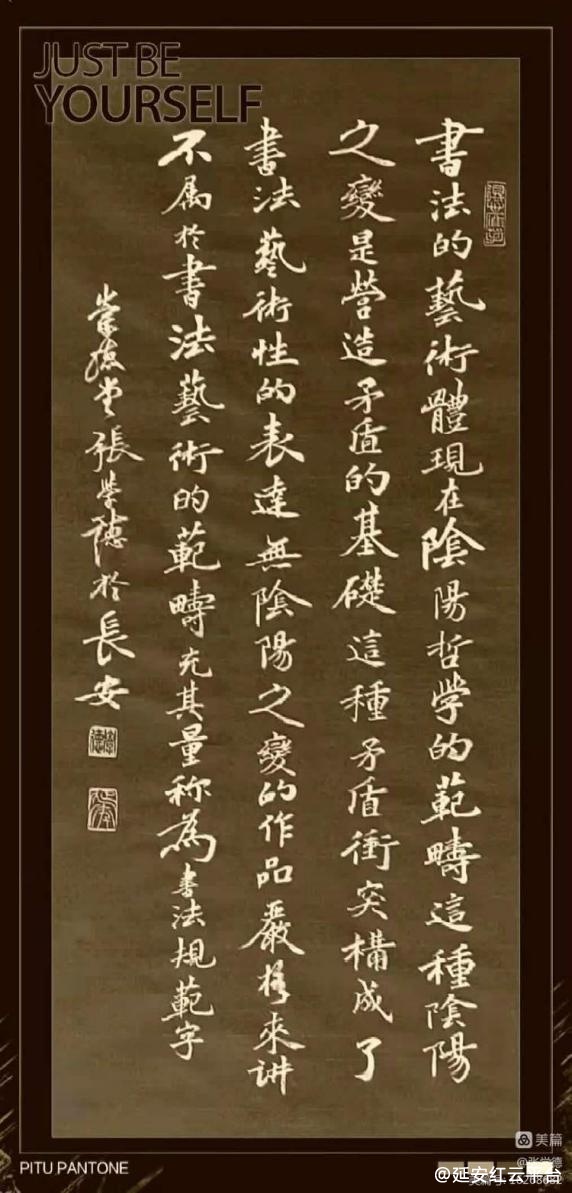 JUST BE
YOURSELF
書法的藝術體現在陰陽哲学的範疇這種陰陽
之變是营造矛盾的基礎這種矛盾衝突構成了
書法藝術性的表達無陰陽之變的作品嚴格來讲
不属於書法藝術的範疇充其量称為書法規範字
崇德堂張学德於長安
美篇
@张学德
PITU PANTONE
@延安红云平台